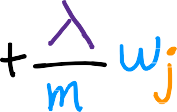 + λ/m w_j